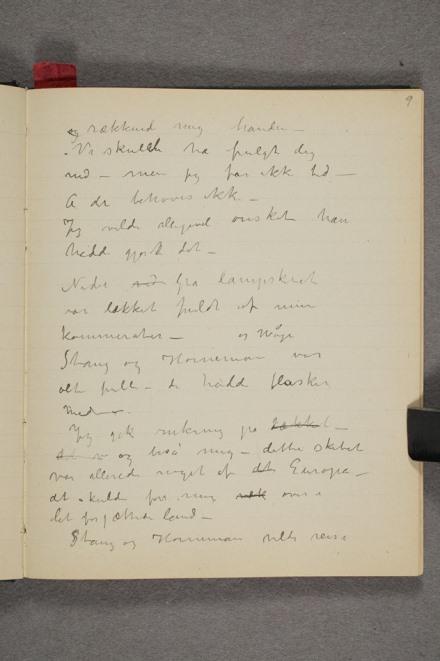 9
og rækkend mig handen –
Vi skulde ha fulgt dig
ned – men jeg far ikke tid –
Å de behøves ikke –
Jeg vilde alligevel ønsket han
hadd gjort det –
Nede fra lampskret
var dækket fuldt af mine
kammerater – og Måge
Stang og Horneman var
alt fulle – de hadd flasker
med
Jeg gik omkring på dækket –
og – dette skibet
var allerede noget af det Europa –
det skulde føre mig over i
det forjættede land –
Stang og Horneman vilde reise